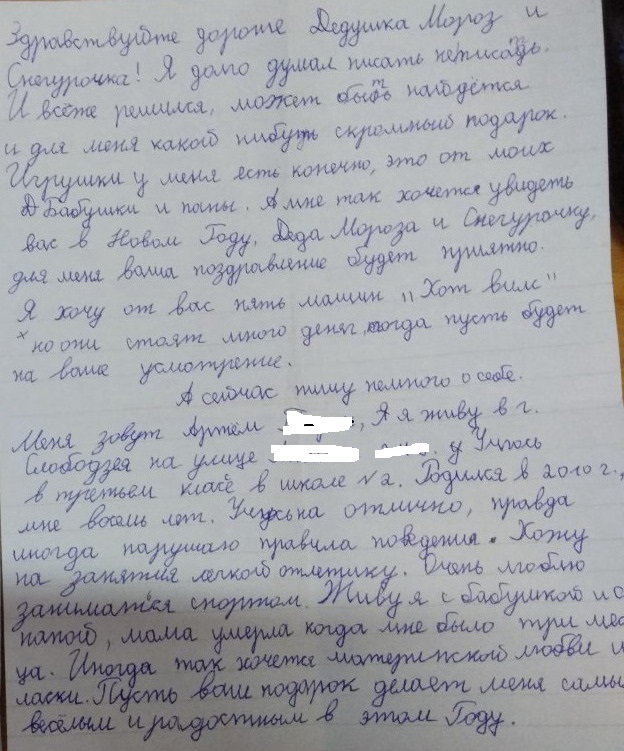 Здравствуйте дорогие Дедушка Мороз и
Снегурочка! Я долго думал писать неписать.
И всёже решился, может быть найдётся
и для меня какой нибуть скромный подарок.
Игрушки у меня есть конечно, это от моих
Бабушки и папы. А мне так хочется увидеть
вас в Новом Году, Деда Мороза и Снегурочку,
для меня ваша поздравление будет приятно.
Я хочу от вас пять машин "Хот вилс"
но они стоят много денег, тогда пусть будет
на ваше усмотрение.
А сейчас пишу немного о себе.
Меня зовут Артём , Я я живу в г.
Слободзея на улице у Учусь
в третьем класе в школе №2. Родился в 2010 г.,
мне восемь лет. Учусь на отлично, правда
иногда нарушаю правила поведения. Хожу
на занятия легкой отлетику. Очень люблю
заниматся спортом. Живу я с бабушкой и с
папой, мама умерла когда мне было три мес
ца. Иногда так хочется материнской любви и
ласки. Пусть ваш подарок делает меня самы
весёлым и радостным в этом Году.